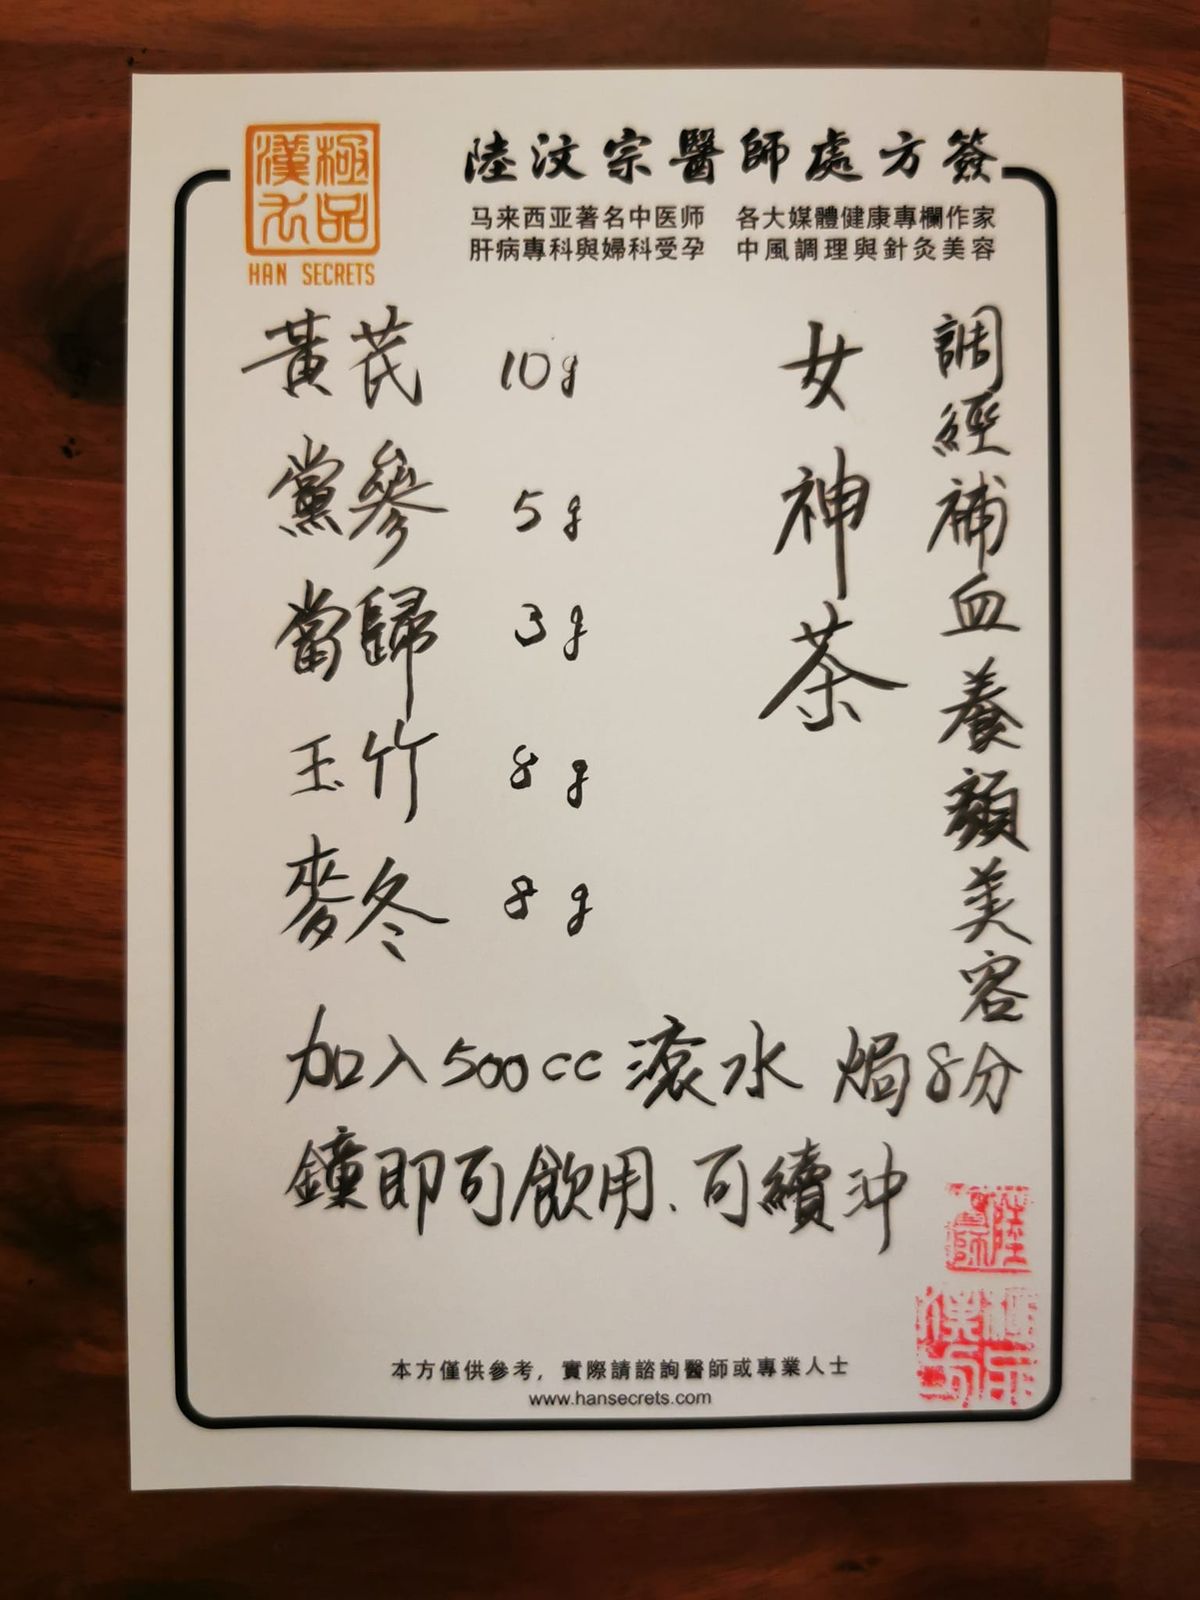 極品漢方
HAN SECRETS
陸汶宗醫師處方簽
马来西亚著名中医师 各大媒體健康專欄作家
肝病專科與婦科受孕 中風調理與針灸美容
調經補血養顏美容
女神茶
黃芪 10g
黨參 5g
當歸 3g
玉竹 8g
麥冬 8g
加入500cc滾水 焗8分
鐘即可飲用、可續沖
陸醫師
極品漢方
本方僅供參考，實際請諮詢醫師或專業人士
www.hansecrets.com